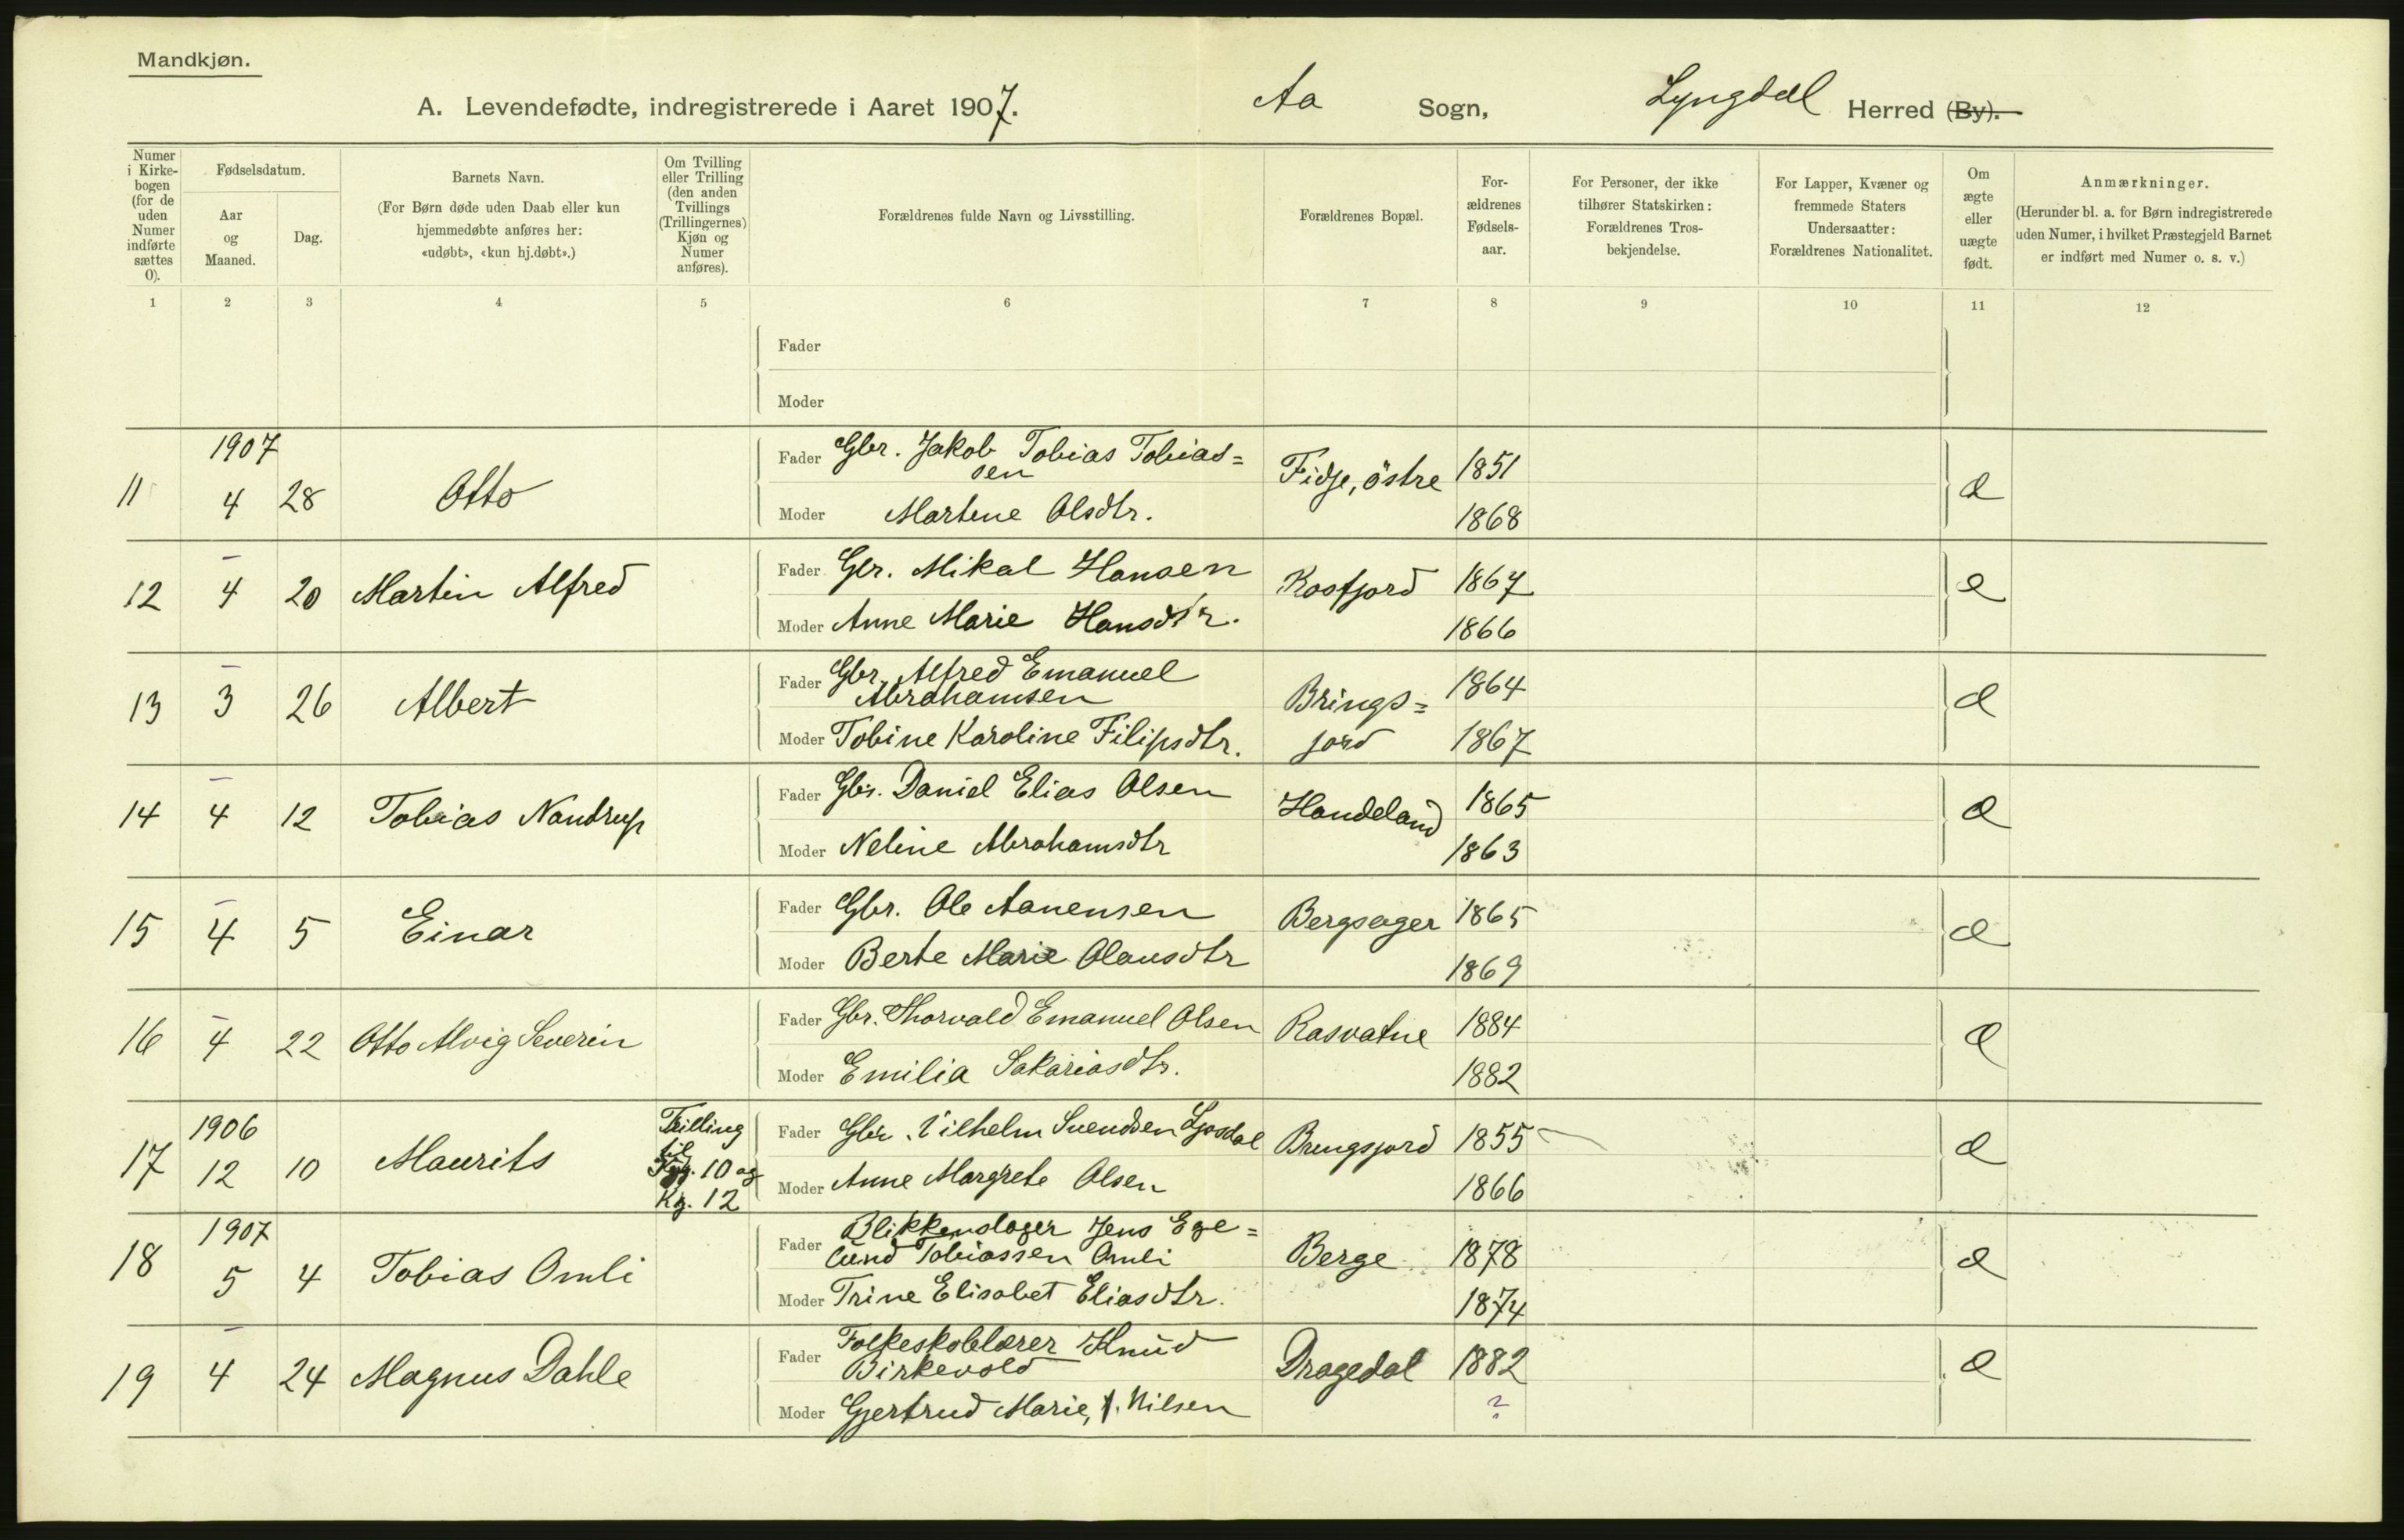 Mandkjøn.
A. Levendefødte, indregistrerede i Aaret 1907. Aa Sogn, Lyngdal Herred (By).
Numer i Kirkebogen (for de uden Numer indførte sættes 0).
Fødselsdatum.
Aar og Maaned.
Dag.
Barnets Navn.
(For Børn døde uden Daab eller kun hjemmedøbte anføres her: «udøbt», «kun hj.døbt».)
Om Tvilling eller Trilling (den anden Tvillings (Trillingernes) Kjøn og Numer anføres).
Forældrenes fulde Navn og Livsstilling.
Forældrenes Bopæl.
Forældrenes Fødselsaar.
For Personer, der ikke tilhører Statskirken: Forældrenes Trosbekjendelse.
For Lapper, Kvæner og fremmede Staters Undersaatter: Forældrenes Nationalitet.
Om ægte eller uægte født.
Anmærkninger.
(Herunder bl. a. for Børn indregistrerede uden Numer, i hvilket Præstegjeld Barnet er indført med Numer o. s. v.)
1 2 3 4 5 6 7 8 9 10 11 12
Fader
Moder
1907
11 4 28 Otto Fader Gbr. Jakob Tobias Tobias=
sen Fidje, östre 1851 æ
Moder Martene Olsdtr. 1868
12 – 4 20 Martin Alfred Fader Gbr. Mikal Hansen Rosfjord 1867 æ
Moder Anne Marie Hansdtr. 1866
13 – 3 26 Albert Fader Gbr. Alfred Emanuel
Abrahamsen Brings= 1864 æ
Moder Tobine Karoline Filipsdtr. jord 1867
14 – 4 12 Tobias Nandrup Fader Gbr. Daniel Elias Olsen Handeland 1865 æ
Moder Neline Abrahamsdtr 1863
15 – 4 5 Einar Fader Gbr. Ole Aanensen Bergsager 1865 æ
Moder Berte Marie Olausdtr 1869
16 – 4 22 Otto Alvig Severin Fader Gbr. Thorvald Emanuel Olsen Rasvatne 1884 æ
Moder Emilia Sakariasdtr. 1882
1906 Trilling
17 12 10 Maurits til Fader Gbr. Vilhelm Svendsen Gjosdal Bringsjord 1855 æ
10 og Moder Anne Margrete Olsen 1866
Kj. 12
1907
18 5 4 Tobias Omli Fader Blikkenslager Jens Ege=
lund Tobiassen Omli Berge 1878 æ
Moder Trine Elisabet Eliasdtr. 1874
19 – 4 24 Magnus Dahle Fader Folkeskolelærer Knud
Birkevold Dragedal 1882 æ
Moder Gjertrud Marie, f. Nilsen ?